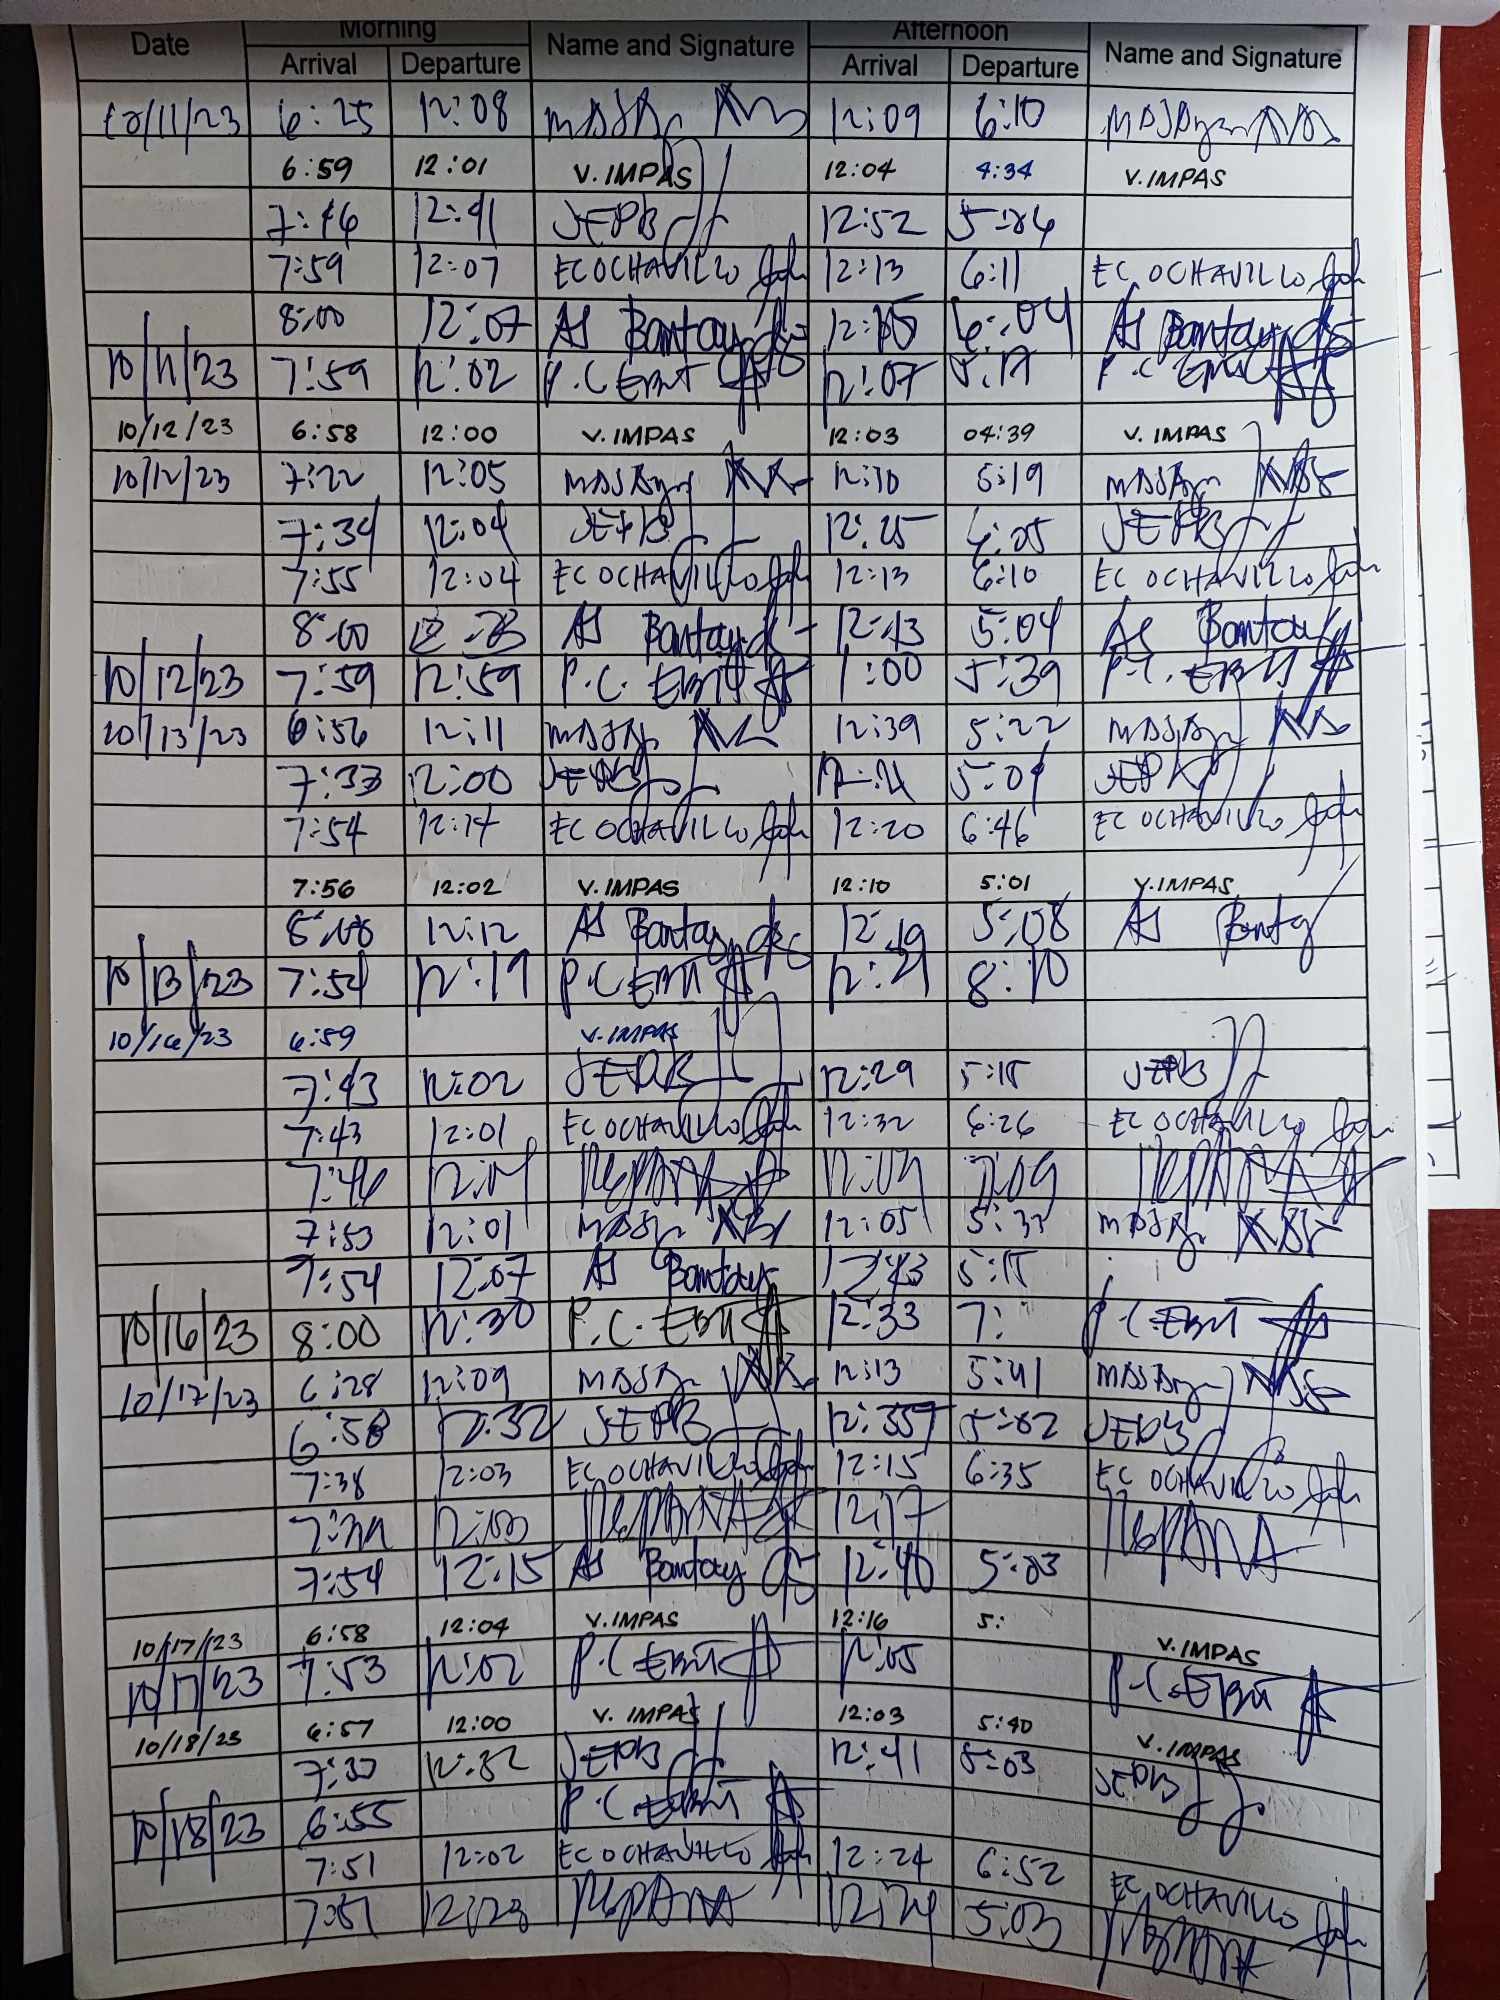 Date Morning Name and Signature Afternoon Name and Signature
Arrival Departure Arrival Departure
10/11/23 6:25 12:08 12:09 6:10
6:59 12:01 V. IMPAS 12:04 4:34 V. IMPAS
7:46 12:41 JEPB 12:52
7:59 12:07 EC OCHAVILLO 12:13 6:11 EC OCHAVILLO
8:00 12:07 AS Bantay 6:04 AS Bantay
10/11/23 7:59 12:02 P.C EBIT 12:07 5:17 P.C EBIT
10/12/23 6:58 12:00 V. IMPAS 12:03 04:39 V. IMPAS
10/12/23 7:22 12:05 12:10 5:19
7:34 12:04 JEPB 12:25 JEPB
7:55 12:04 EC OCHAVILLO 12:13 6:10 EC OCHAVILLO
8:00 AS Bantay 12:43 5:04 AS Bantay
10/12/23 7:59 12:59 P.C. EBIT 1:00 5:39 P.C. EBIT
10/13/23 6:56 12:11 12:39 5:22
7:33 12:00 JEPB 12:21 5:09 JEPB
7:54 12:14 EC OCHAVILLO 12:20 6:46 EC OCHAVILLO
7:56 12:02 V. IMPAS 12:10 5:01 V. IMPAS
12:12 AS Bantay 12:49 5:08 AS Bantay
10/13/23 7:54 12:19 P.C EBIT 12:21 8:10
10/16/23 6:59 V. IMPAS
7:43 12:02 JEPB 12:29 5:15 JEPB
7:43 12:01 EC OCHAVILLO 12:32 6:26 EC OCHAVILLO
7:46 12:04 12:09 7:09
7:53 12:01 12:05 5:33
7:54 12:07 AS Bantay 12:43
10/16/23 8:00 12:30 P.C. EBIT 12:33 7: P.C. EBIT
10/17/23 6:28 12:09 12:13 5:41
6:58 12:32 JEPB 5:02 JEPB
7:38 12:03 EC OCHAVILLO 12:15 6:35 EC OCHAVILLO
12:17
7:54 12:15 AS Bantay 12:40 5:03
10/17/23 6:58 12:04 V. IMPAS 12:16 5: V. IMPAS
10/17/23 7:53 12:02 P.C EBIT 12:05 P.C. EBIT
10/18/23 6:57 12:00 V. IMPAS 12:03 5:40 V. IMPAS
12:32 JEPB 12:41 5:03 JEPB
10/18/23 6:55 P.C. EBIT
7:51 12:02 EC OCHAVILLO 12:24 6:52 EC OCHAVILLO
7:51 12:23 12:24 5:03